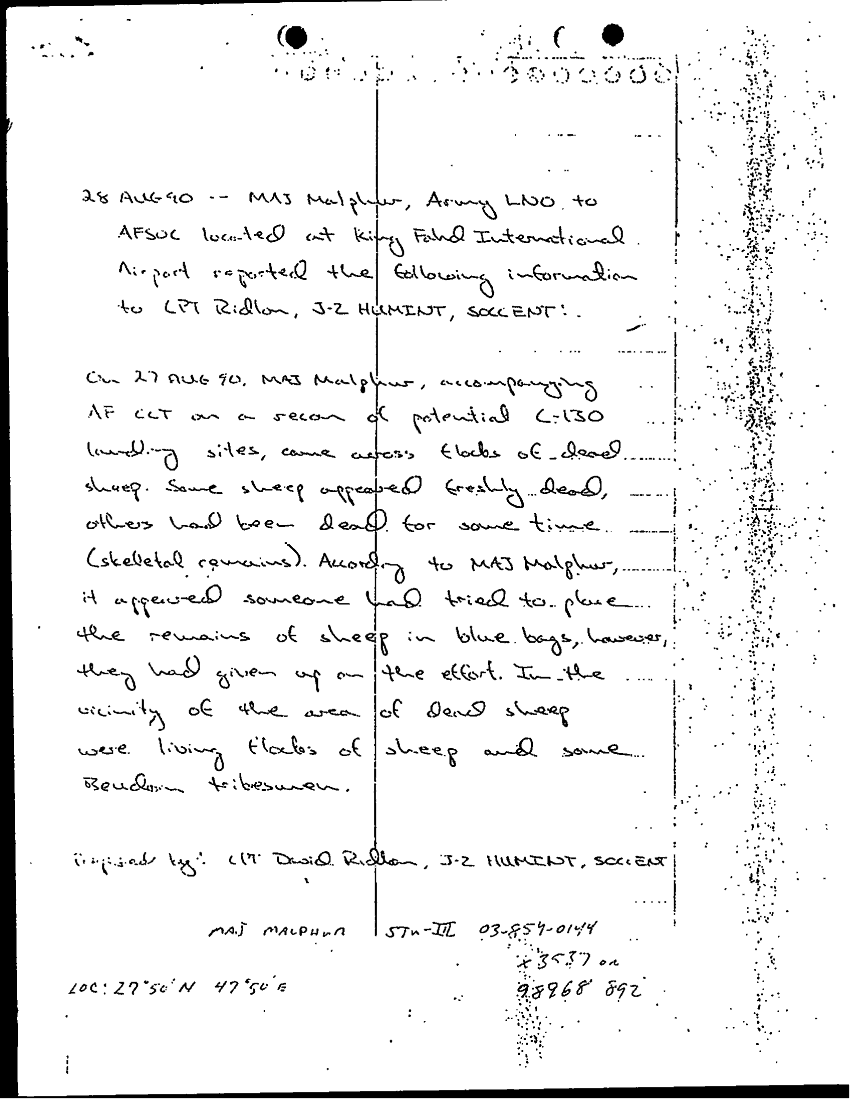 28 AUG 90 -- MAJ Malphur, Army LNO to
AFSOC located at King Fahd International
Airport reported the following information
to CPT Ridlon, J-2 HUMINT, SOCCENT:
On 27 AUG 90, MAJ Malphur, accompanying
AF CCT on a recon of potential C-130
landing sites, came across flocks of dead
sheep. Some sheep appeared freshly dead,
others had been dead for some time
(skeletal remains). According to MAJ Malphur,
it appeared someone had tried to place
the remains of sheep in blue bags, however,
they had given up on the effort. In the
vicinity of the area of dead sheep
were living flocks of sheep and some
Beudoin tribesmen.
by: CPT David Ridlon, J-2 HUMINT, SOCCENT
MAJ MALPHUR STU-III 03-859-0144
x3537 or
LOC: 27°50'N 47°50'E 98968 892